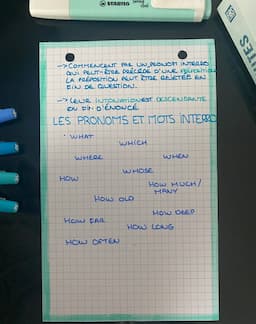 STABILO
→ COMMENCENT PAR UN PRONOM INTERRO
QUI PEUT-ÊTRE PRÉCÉDÉ D'UNE PRÉPOSITION
LA PRÉPOSITION PEUT ÊTRE REJETÉE EN
FIN DE QUESTION.
→ LEUR INTONATION EST DESCENDANTE
EN FIN D'ÉNONCÉ
LES PRONOMS ET MOTS INTERRO
· WHAT
WHICH
WHERE
WHEN
WHOSE
HOW
HOW MUCH/
MANY
HOW OLD
HOW DEEP
HOW FAR
HOW LONG
HOW OFTEN